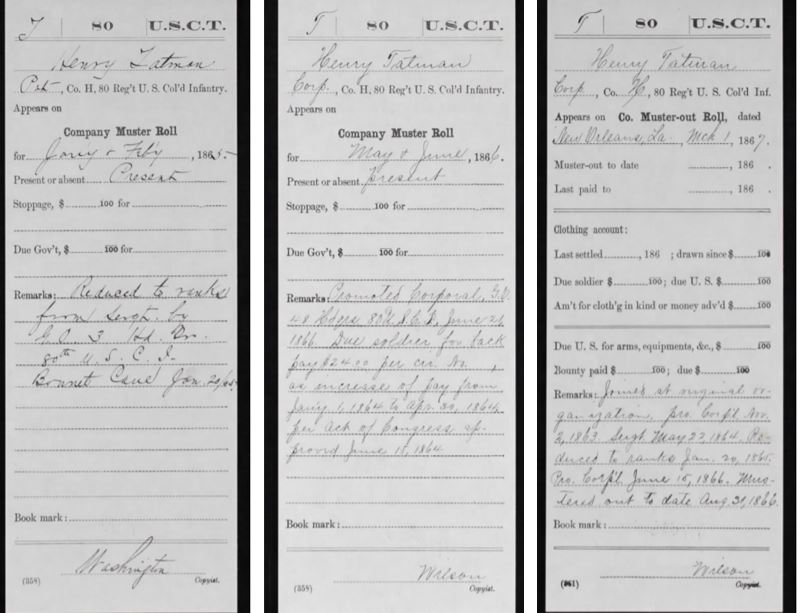 T | 80 | U.S.C.T.
Henry Tatman
Pvt, Co. H, 80 Reg't U. S. Col'd Infantry.
Appears on
Company Muster Roll
for Jany & Feby, 1865.
Present or absent Present
Stoppage, $ 100 for
Due Gov't, $ 100 for
Remarks: Reduced to ranks
from Sergt. by
G.O. 3 Hd. Qr.
80th U. S. C. I.
Bonnet Carré Jan. 20/65
Book mark:
Washington
(358) Copyist.
T | 80 | U.S.C.T.
Henry Tatman
Corp., Co. H, 80 Reg't U. S. Col'd Infantry.
Appears on
Company Muster Roll
for May & June, 1866.
Present or absent Present
Stoppage, $ 100 for
Due Gov't, $ 100 for
Remarks: Promoted Corporal, G.O.
48 Hdqrs 80 U.S.C.I. June 21
1866. Due soldier for back
pay $24.00 per cir. No. ,
as increase of pay from
Jany. 1, 1864 to Apr. 30, 1864.
per Act of Congress ap-
proved June 15, 1864
Book mark:
Wilson
(358) Copyist.
T | 80 | U.S.C.T.
Henry Tatman
Corp., Co. H, 80 Reg't U. S. Col'd Inf.
Appears on Co. Muster-out Roll, dated
New Orleans, La. Mch 1, 1867.
Muster-out to date , 186 .
Last paid to , 186 .
Clothing account:
Last settled , 186 ; drawn since $ 100
Due soldier $ 100; due U. S. $ 100
Am't for cloth'g in kind or money adv'd $ 100
Due U. S. for arms, equipments, &c., $ 100
Bounty paid $ 100; due $ 100
Remarks: Joined at original or-
ganization, pro. Corpl. Nov.
2, 1863. Sergt May 22, 1864. Re-
duced to ranks Jan. 20, 1865.
Pro. Corpl. June 15, 1866. Mus-
tered out to date Aug. 31, 1866.
Book mark:
Wilson
(361) Copyist.